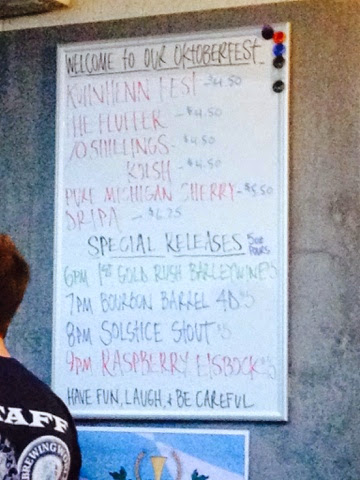 WELCOME to OUR OKTOBERFEST
FEST -$4.50
THE FLUFFER -$4.50
70 SHILLINGS- $4.50
KOLSH -$4.50
PURE MICHIGAN SHERRY-$5.50
DRIPA -$6.75
SPECIAL RELEASES 5oz POURS
6PM 1st GOLD RUSH BARLEYWINE $5
7PM BOURBON BARREL 4D $5
8PM SOLSTICE STOUT $5
9PM RASPBERRY EISBOCK $5
HAVE FUN, LAUGH, & BE CAREFUL
STAFF
BREWING